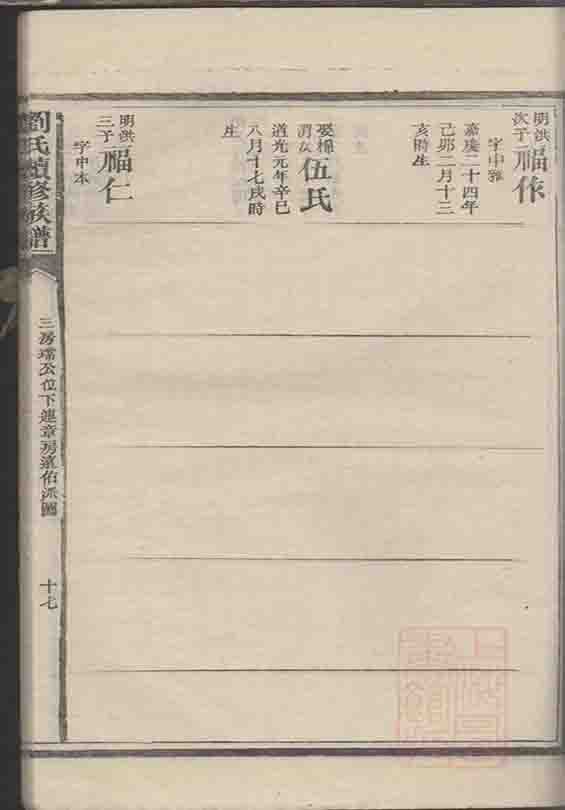 明洪
次子
福作
字中雅
嘉慶二十四年
己卯二月十三
亥時生
娶楊
伍氏
道光元年辛巳
八月十七戌時
生
明洪
三子
福仁
字中本
劉氏續修族譜
三房瑞公位下連章房進佑派圖
十七